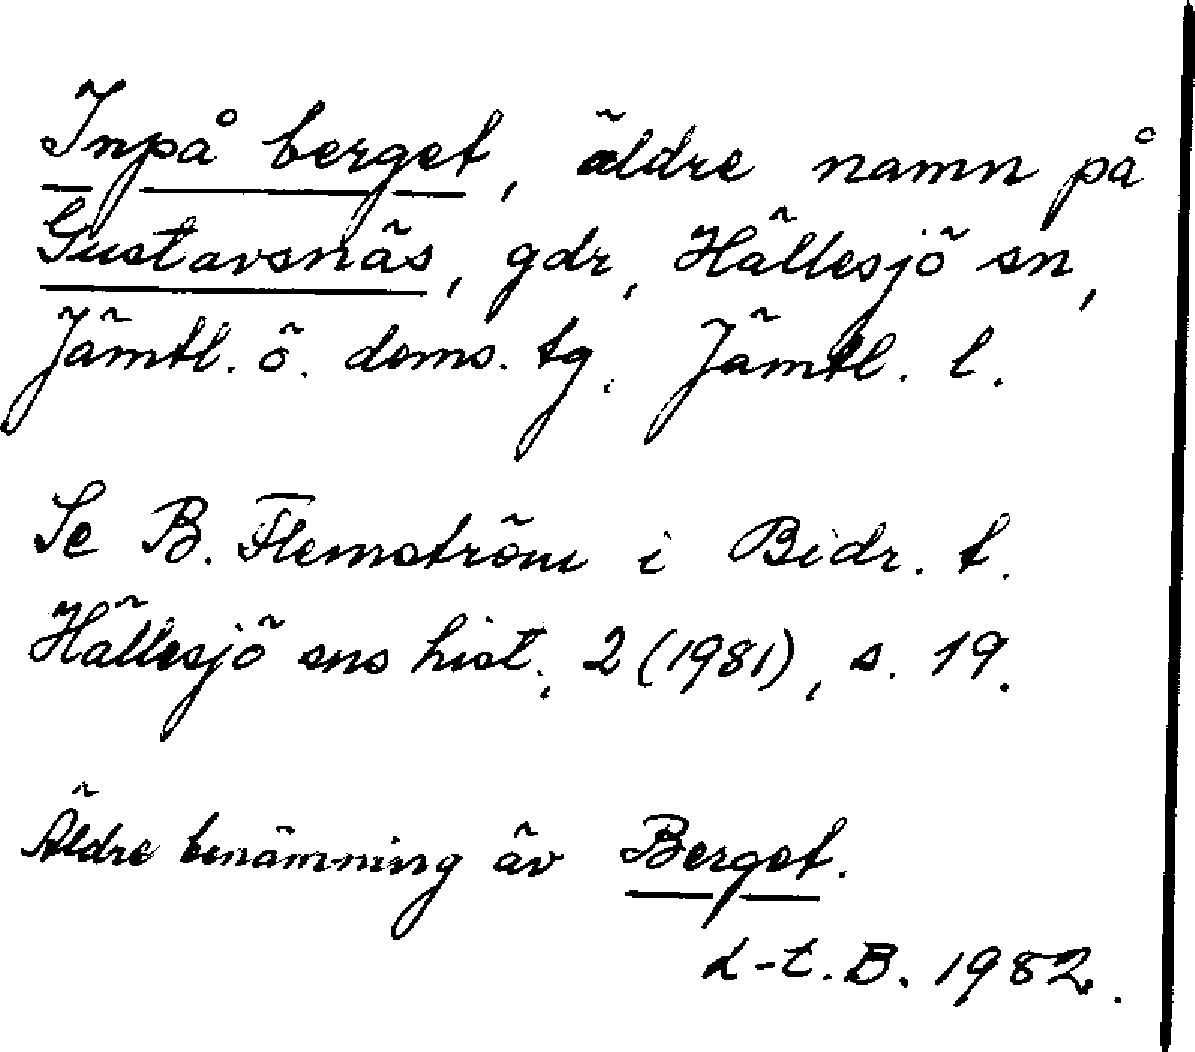 Inpå berget, äldre namn på
Gustavsnäs, gdr, Hällesjö sn,
Jämtl. ö. doms. tg. Jämtl. l.
Se B. Flemström i Bidr. t.
Hällesjö sns hist., 2 (1981), s. 19.
Äldre benämning äv Berget.
L-t. B. 1982.